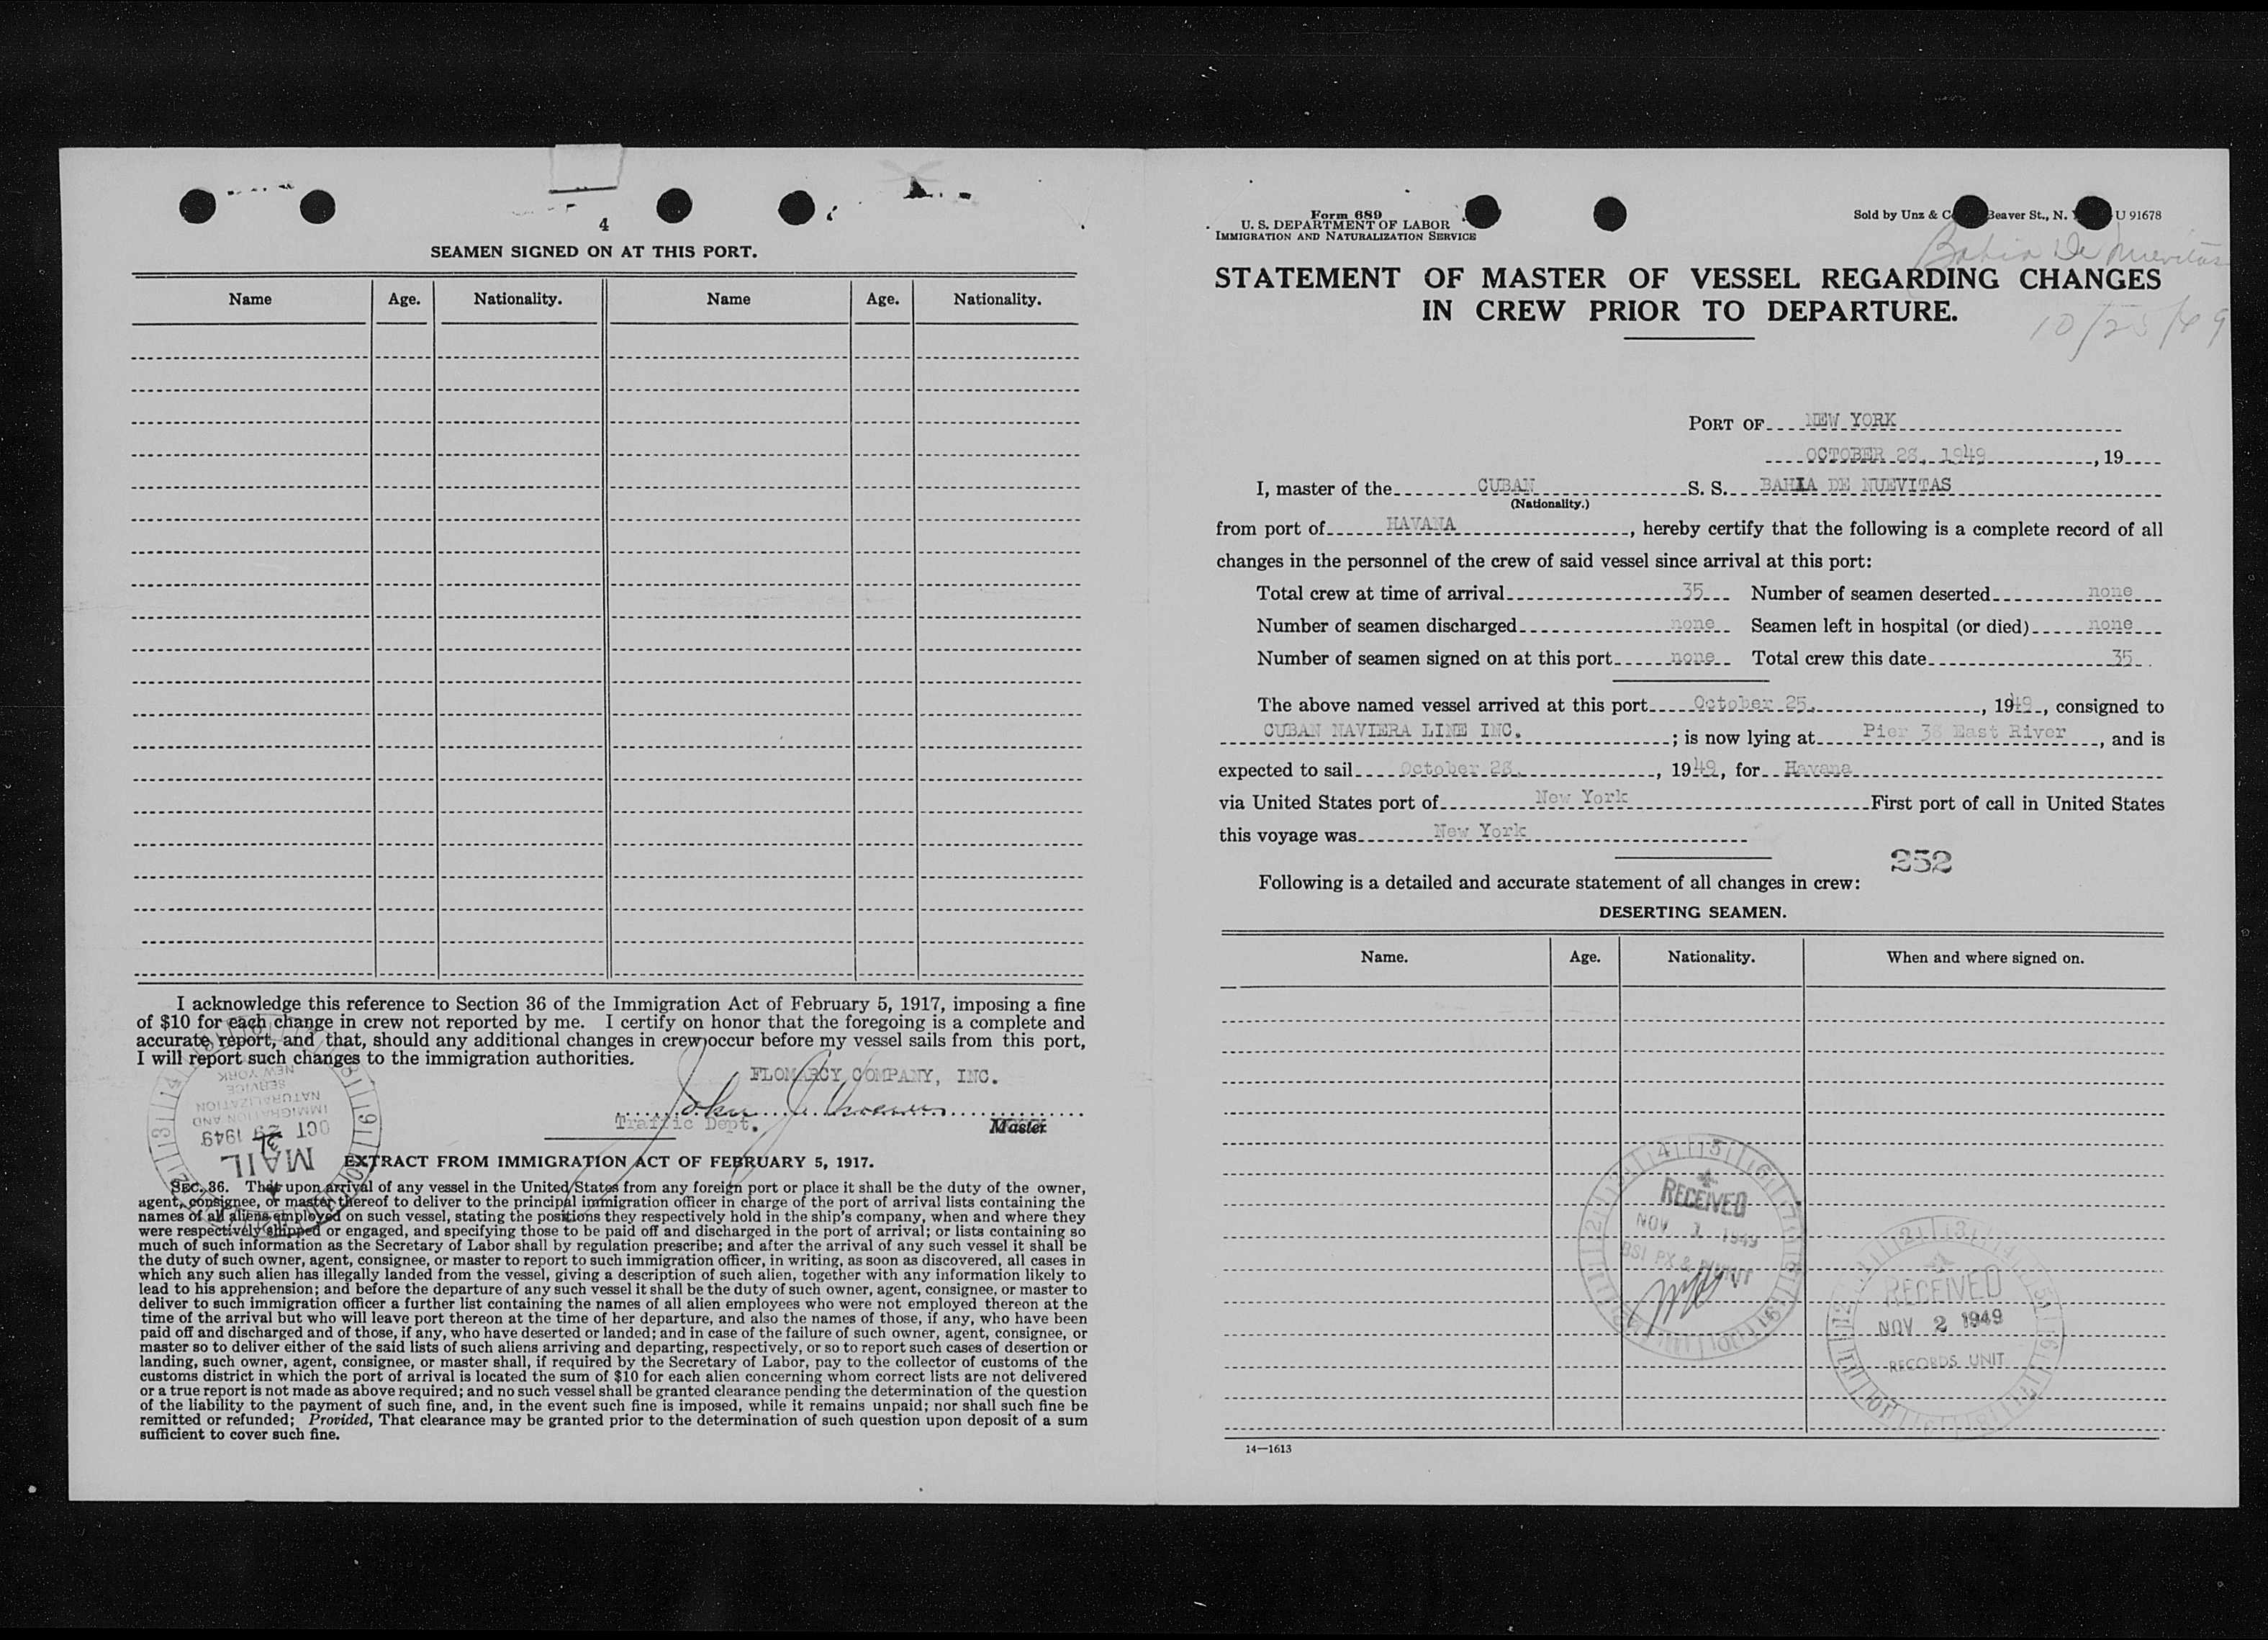 4
SEAMEN SIGNED ON AT THIS PORT.
Name Age. Nationality. Name Age. Nationality.
I acknowledge this reference to Section 36 of the Immigration Act of February 5, 1917, imposing a fine
of $10 for each change in crew not reported by me. I certify on honor that the foregoing is a complete and
accurate report, and that, should any additional changes in crew occur before my vessel sails from this port,
I will report such changes to the immigration authorities.
FLOMARCY COMPANY, INC.
John J.
Traffic Dept. Master
NEW YORK
SERVICE
NATURALIZATION
IMMIGRATION AND
OCT 29 1949
31
MAIL
EXTRACT FROM IMMIGRATION ACT OF FEBRUARY 5, 1917.
SEC. 36. That upon arrival of any vessel in the United States from any foreign port or place it shall be the duty of the owner,
agent, consignee, or master thereof to deliver to the principal immigration officer in charge of the port of arrival lists containing the
names of all aliens employed on such vessel, stating the positions they respectively hold in the ship's company, when and where they
were respectively shipped or engaged, and specifying those to be paid off and discharged in the port of arrival; or lists containing so
much of such information as the Secretary of Labor shall by regulation prescribe; and after the arrival of any such vessel it shall be
the duty of such owner, agent, consignee, or master to report to such immigration officer, in writing, as soon as discovered, all cases in
which any such alien has illegally landed from the vessel, giving a description of such alien, together with any information likely to
lead to his apprehension; and before the departure of any such vessel it shall be the duty of such owner, agent, consignee, or master to
deliver to such immigration officer a further list containing the names of all alien employees who were not employed thereon at the
time of the arrival but who will leave port thereon at the time of her departure, and also the names of those, if any, who have been
paid off and discharged and of those, if any, who have deserted or landed; and in case of the failure of such owner, agent, consignee, or
master so to deliver either of the said lists of such aliens arriving and departing, respectively, or so to report such cases of desertion or
landing, such owner, agent, consignee, or master shall, if required by the Secretary of Labor, pay to the collector of customs of the
customs district in which the port of arrival is located the sum of $10 for each alien concerning whom correct lists are not delivered
or a true report is not made as above required; and no such vessel shall be granted clearance pending the determination of the question
of the liability to the payment of such fine, and, in the event such fine is imposed, while it remains unpaid; nor shall such fine be
remitted or refunded; Provided, That clearance may be granted prior to the determination of such question upon deposit of a sum
sufficient to cover such fine.
Form 689
U. S. DEPARTMENT OF LABOR
IMMIGRATION AND NATURALIZATION SERVICE
Sold by Unz & C Beaver St., N. U 91678
Bahia De Nuevitas
STATEMENT OF MASTER OF VESSEL REGARDING CHANGES
IN CREW PRIOR TO DEPARTURE.
10/25/49
PORT OF NEW YORK
OCTOBER 28, 1949, 19
I, master of the CUBAN S. S. BAHIA DE NUEVITAS
(Nationality.)
from port of HAVANA, hereby certify that the following is a complete record of all
changes in the personnel of the crew of said vessel since arrival at this port:
Total crew at time of arrival 35 Number of seamen deserted none
Number of seamen discharged none Seamen left in hospital (or died) none
Number of seamen signed on at this port none Total crew this date 35
The above named vessel arrived at this port October 25, 1949, consigned to
CUBAN NAVIERA LINE INC.; is now lying at Pier 36 East River, and is
expected to sail October 28, 1949, for Havana
via United States port of New York First port of call in United States
this voyage was New York
252
Following is a detailed and accurate statement of all changes in crew:
DESERTING SEAMEN.
Name. Age. Nationality. When and where signed on.
RECEIVED
NOV 1 1949
RECEIVED
NOV 2 1949
RECORDS UNIT
14—1613